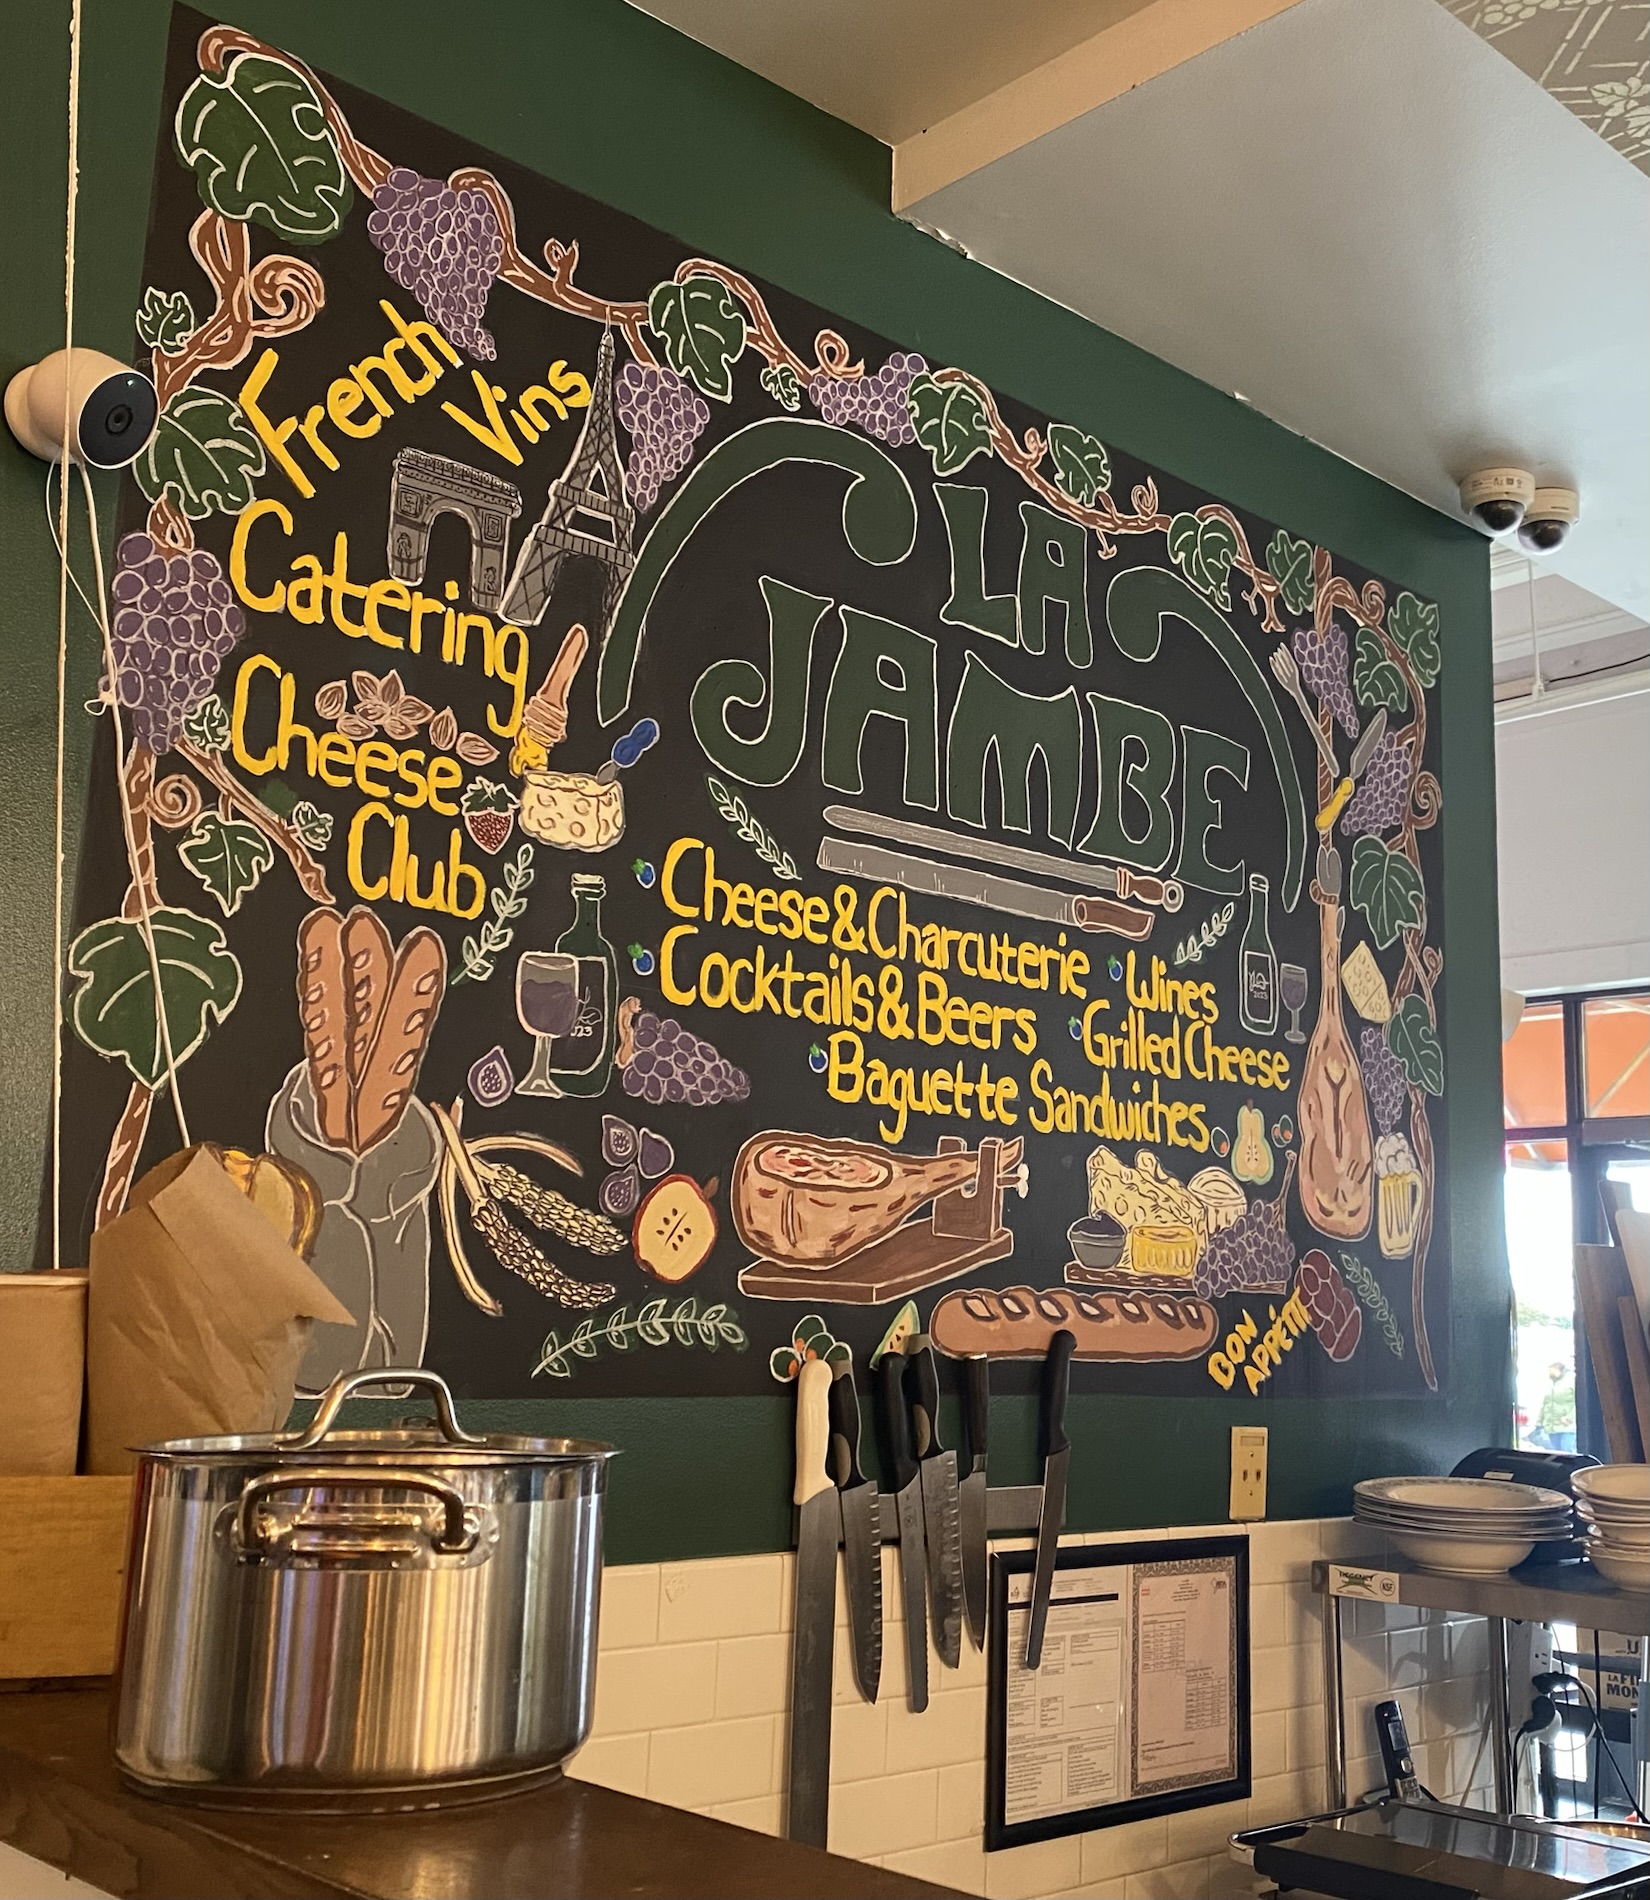 French
Vins
Catering
Cheese
Club
LA
JAMBE
Cheese & Charcuterie
Wines
Cocktails & Beers
Grilled Cheese
Baguette Sandwiches
2023
BON
APPÉTIT
NSF